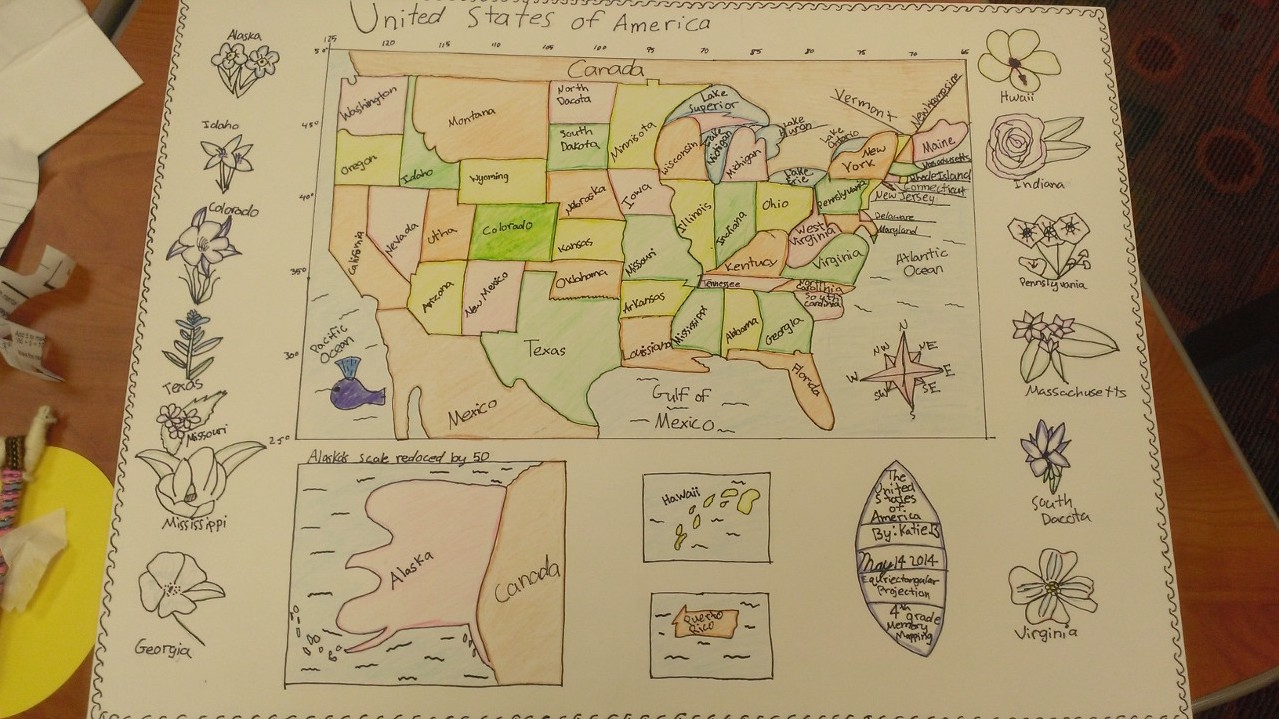 United States of America
125 120 115 110 105 100 95 70 85 80 75 70 65
50°
45°
40°
35°
30°
25°
Canada
Washington
Montana
North
Dacota
South
Dakota
Minnisota
Lake
Superior
Wisconsin
Lake
Michigan
Michigan
Lake
Huron
Lake
Ontario
Lake
Erie
Vermont
New Hampshire
New
York
Maine
Massachusetts
Rhode Island
Connecticut
New Jersey
Delaware
Maryland
Oregon
Idaho
Wyoming
Nebraska
Iowa
Illinois
Indiana
Ohio
Pennsylvania
West
Virginia
Virginia
California
Nevada
Utha
Colorado
Kansas
Missouri
Kentucy
Atlantic
Ocean
Arizona
New Mexico
Oklahoma
Arkansas
Tennessee
South
Texas
Louisiana
Mississippi
Alabama
Georgia
Florida
Pacific
Ocean
Mexico
Gulf of
Mexico
N
NE
E
SE
S
SW
W
NW
Alaska
Idaho
Colorado
Texas
Missouri
Mississippi
Georgia
Hwaii
Indiana
Pennsylvania
Massochusetts
South
Daccta
Virginia
Alaska's scale reduced by 50
Alaska
Canada
Hawaii
Puerto
Rico
The
United
States
of
America
By: Katie B
May 14 2014
Equriectangular
Projection
4th grade
Memory
Mapping